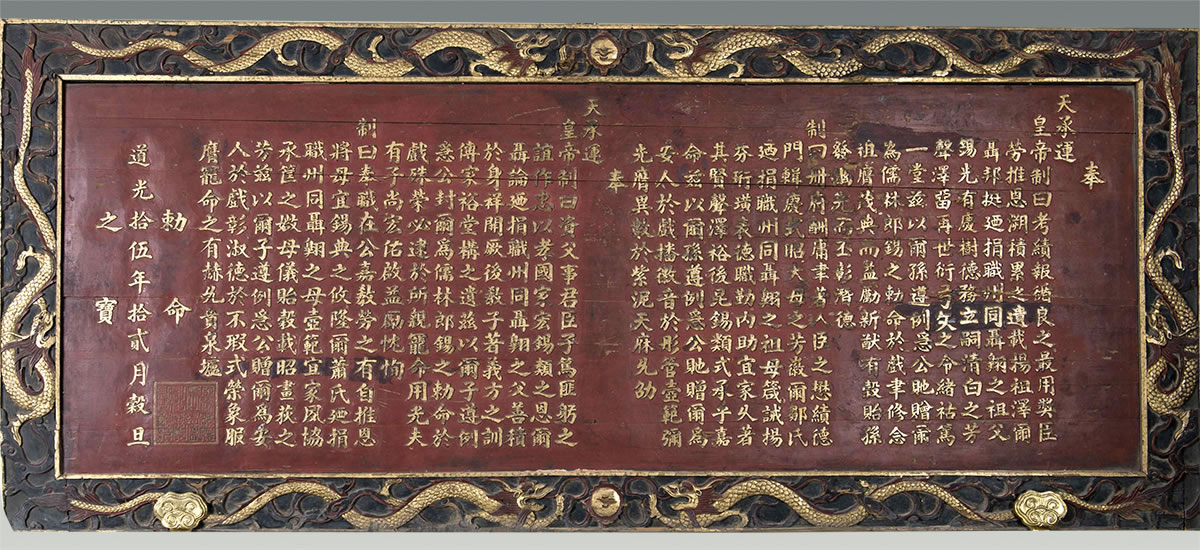 奉
天承運
皇帝制曰考績報循良之最用獎臣
勞推恩溯積累之遺載揚祖澤爾
聶邦挺廼捐職州同聶翱之祖父
錫光有慶樹德務立嗣清白之芳
聲澤留再世衍弓矢之令緒祜篤
一堂茲以爾孫遵例急公貤贈爾
為儒林郎錫之勅命於戲聿修念
祖膺茂典而益勵新猷有穀貽孫
發幽光而丕彰潛德
制曰冊府酬庸聿著人臣之懋績德
門輯慶式昭大母之芳徽爾鄒氏
廼捐職州同聶翱之祖母箴誡揚
芬珩璜表德職勤內助宜家久著
其賢聲澤裕後昆錫類式承乎嘉
命茲以爾孫遵例急公貤贈爾為
安人於戲播徽音於彤管壼範彌
先膺異數於紫泥天庥允劭
奉
天承運
皇帝制曰資父事君臣子篤匪躬之
誼作忠以孝國家宏錫類之恩爾
聶論廼捐職州同聶翱之父善積
於身祥開厥後教子著義方之訓
傳家裕堂構之遺茲以爾子遵例
急公封爾為儒林郎錫之勅命於
戲殊榮必逮於所親寵命用光夫
有子尚宏佑啟益勵忱恂
制曰奉職在公嘉教勞之有自推恩
將母宜錫典之攸隆爾蕭氏廼捐
職州同聶翱之母壼範宜家夙協
承筐之媺母儀貽穀載昭畫荻之
芳茲以爾子遵例急公贈爾為安
人於戲彰淑德於不瑕式榮象服
膺寵命之有赫允賁泉壚
勅命
道光拾伍年拾貳月穀旦
之寶